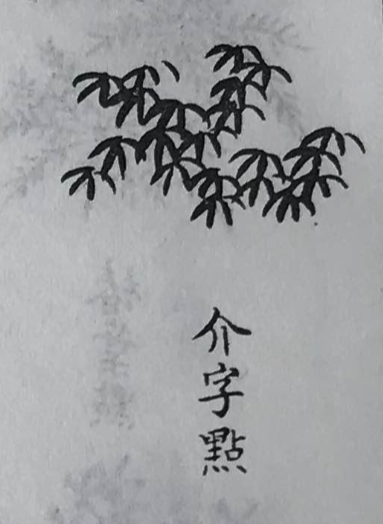 介字點